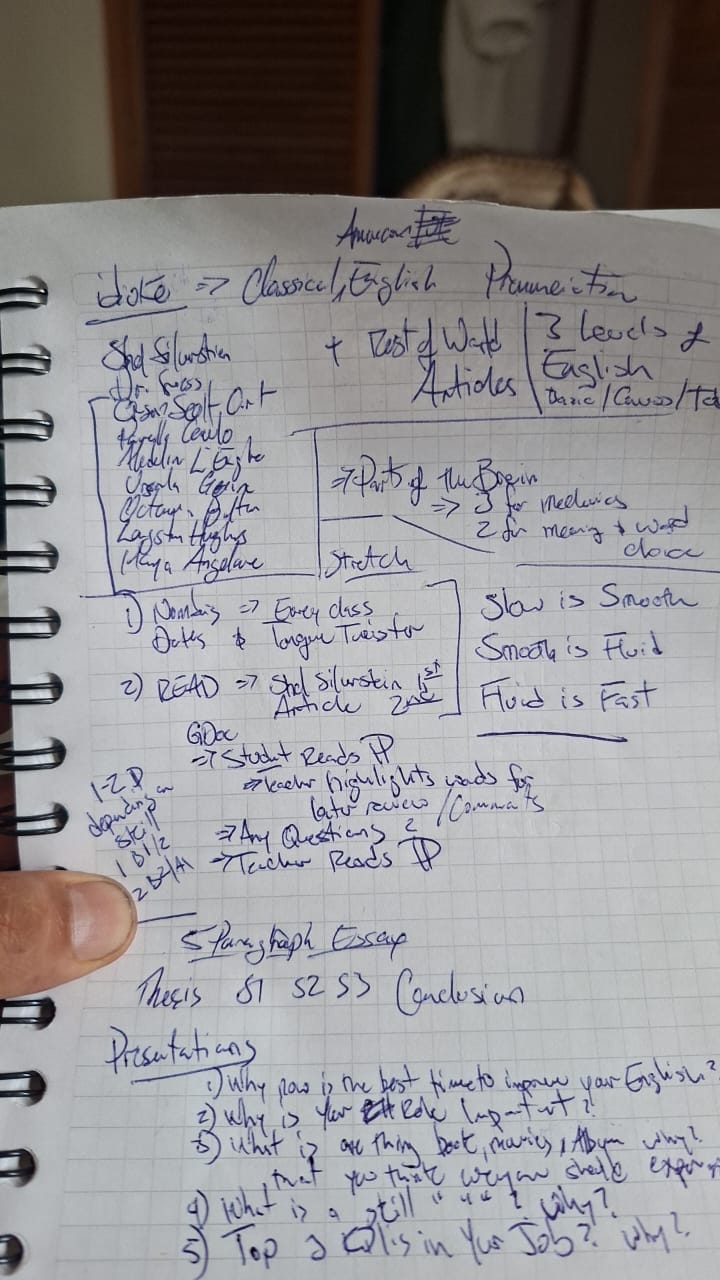 American
=> Classical English Pronunciation
Shel Silverstein
Dr. Seuss
Orson Scott Card
Madelin L'Engle
Ursula Guin
Langston Hughes
Maya Angelou
+ Rest of World
Articles
3 Levels of
English
=> Parts of the Brain
=> 3 for mechanics
2 for meaning & word
choice
Stretch
1) Numbers => Every class
Dates & Tongue Twister
2) READ => Shel Silverstein 1st
Article 2nd
Slow is Smooth
Smooth is Fluid
Fluid is Fast
GDoc
=> Student Reads P
=> Teacher highlights words for
later review / Comments
=> Any Questions ?
=> Teacher Reads P
1-2 P
depending on
skill
1 B1/2
2 B2/A1
5 Paragraph Essay
Thesis S1 S2 S3 Conclusion
Presentations
1) Why now is the best time to improve your English?
2) Why is Your Role Important?
3) What is one thing book, movies, Album why?
that you think everyone should
4) What is a skill " " ? Why?
5) Top 3 in Your Job? Why?